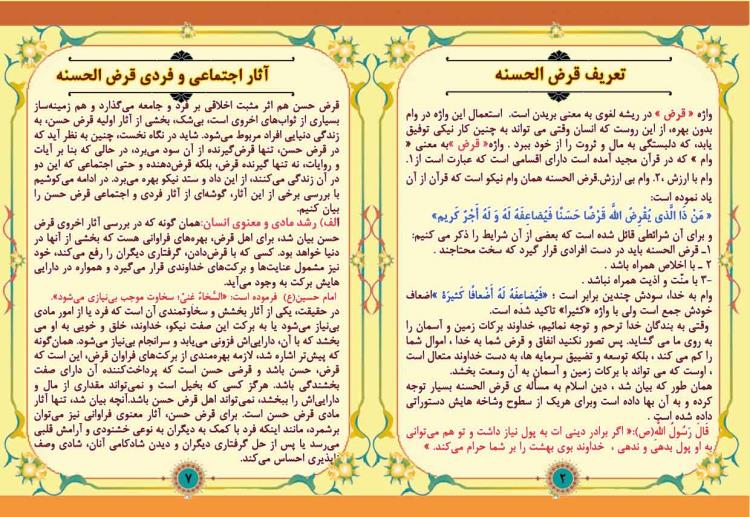 تعریف قرض الحسنه
واژه « قرض » در ریشه لغوی به معنی بریدن است. استعمال این واژه در وام
بدون بهره، از این روست که انسان وقتی می تواند به چنین کار نیکی توفیق
یابد، که دلبستگی به مال و ثروت را از خود ببرد . واژه« قرض »به معنی «
وام » که در قرآن مجید آمده است دارای اقسامی است که عبارت است از ۱.
وام با ارزش ۲،. وام بی ارزش.قرض الحسنه همان وام نیکو است که قرآن از آن
یاد نموده است:
« مَنْ ذَا الَّذی یُقْرِضُ اللَّهَ قَرْضًا حَسَنًا فَیُضاعِفَهُ لَهُ وَ لَهُ أَجْرٌ کَریم»
و برای آن شرائطی قائل شده است که بعضی از آن شرایط را ذکر می کنیم:
۱ـ قرض الحسنه باید در دست افرادی قرار گیرد که سخت محتاجند .
۲ - با اخلاص همراه باشد .
۳- با منّت و اذیت همراه نباشد .
وام به خدا، سودش چندین برابر است ؛ «فَیُضاعِفَهُ لَهُ أَضْعافًا کَثیرَهً »اضعاف
خودش جمع است ولی با واژه «کثیرا» تاکید شده است.
وقتی به بندگان خدا ترحم و توجه نمائیم، خداوند برکات زمین و آسمان را
به روی ما می گشاید. پس تصور نکنید انفاق و قرض شما به خدا ، اموال شما
را کم می کند ، بلکه توسعه و تضییق سرمایه ها، به دست خداوند متعال است
، اوست که می تواند با برکات زمین و آسمان به آن وسعت بخشد.
همان طور که بیان شد ، دین اسلام به مسأله ی قرض الحسنه بسیار توجه
کرده و به آن بها داده است وبرای هریک از سطوح وشاخه هایش دستوراتی
داده شده است .
قَالَ رَسُولُ اللَّه(ص):« اگر برادر دینی ات به پول نیاز داشت و تو هم می‌توانی
به او پول بدهی و ندهی ، خداوند بوی بهشت را بر شما حرام می‌کند. »
۲
آثار اجتماعی و فردی قرض الحسنه
قرض حسن هم اثر مثبت اخلاقی بر فرد و جامعه می‌گذارد و هم زمینه‌ساز
بسیاری از ثواب‌های اخروی است، بی‌شک، بخشی از آثار اولیه قرض حسن، به
زندگی دنیایی افراد مربوط می‌شود. شاید در نگاه نخست، چنین به نظر آید که
در قرض حسن، تنها قرض‌گیرنده از آن سود می‌برد، در حالی که بنا بر آیات
و روایات، نه تنها گیرنده قرض، بلکه قرض‌دهنده و حتی اجتماعی که این دو
در آن زندگی می‌کنند، از این داد و ستد نیکو بهره می‌برد. در ادامه می‌کوشیم
با بررسی برخی از این آثار، گوشه‌ای از آثار فردی و اجتماعی قرض حسن را
بیان کنیم.
الف) رشد مادی و معنوی انسان:همان گونه که در بررسی آثار اخروی قرض
حسن بیان شد، برای اهل قرض، بهره‌های فراوانی هست که بخشی از آنها در
دنیا خواهد بود. کسی که با قرض‌دادن، گرفتاری دیگران را رفع می‌کند، خود
نیز مشمول عنایت‌ها و برکت‌های خداوندی قرار می‌گیرد و همواره در دارایی
هایش برکت به وجود می‌آید.
امام حسین(ع) فرموده است: «السَّخاءُ غنیً؛ سخاوت موجب بی‌نیازی می‌شود».
در حقیقت، یکی از آثار بخشش و سخاوتمندی آن است که فرد یا از امور مادی
بی‌نیاز می‌شود یا به برکت این صفت نیکو، خداوند، خلق و خویی به او می
بخشد که با آن، دارایی‌اش فزونی می‌یابد و سرانجام بی‌نیاز می‌شود. همان‌گونه
که پیش‌تر اشاره شد، لازمه بهره‌مندی از برکت‌های فراوان قرض، این است که
قرض، حسن باشد و قرضی حسن است که پرداخت‌کننده آن دارای صفت
بخشندگی باشد. هرگز کسی که بخیل است و نمی‌تواند مقداری از مال و
دارایی‌اش را ببخشد، نمی‌تواند اهل قرض حسن باشد.آنچه بیان شد، تنها آثار
مادی قرض حسن است. برای قرض حسن، آثار معنوی فراوانی نیز می‌توان
برشمرد، مانند اینکه فرد با کمک به دیگران به نوعی خشنودی و آرامش قلبی
می‌رسد یا پس از حل گرفتاری دیگران و دیدن شادکامی آنان، شادی وصف
ناپذیری احساس می‌کند.
۷